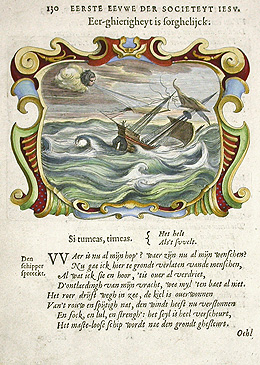 130 EERSTE EEUWE DER SOCIETEYT IESV.
Eer-ghierigheyt is sorghelijck.
Si tumeas, timeas. { Het helt
Als't swelt.
Den
schipper
spreeckt.
WAer is nu al mijn hop'? waer zijn nu al mijn wenschen?
Nu gae ick hier te grondt verlaten vande menschen,
Al wat ick sie en hoor, 'tis over al verdriet,
D'ontlaedingh van mijn vracht, wee my! 'ten baet al niet.
Het roer drijft wegh in zee, de kiel is overwonnen
Van't rouw en spijtigh nat, den windt heeft nu verslonnen
En sock, en lul, en strengh': het seyl is heel verscheurt,
Het maste-loose schip wordt nae den grondt ghesleurt.
Och!